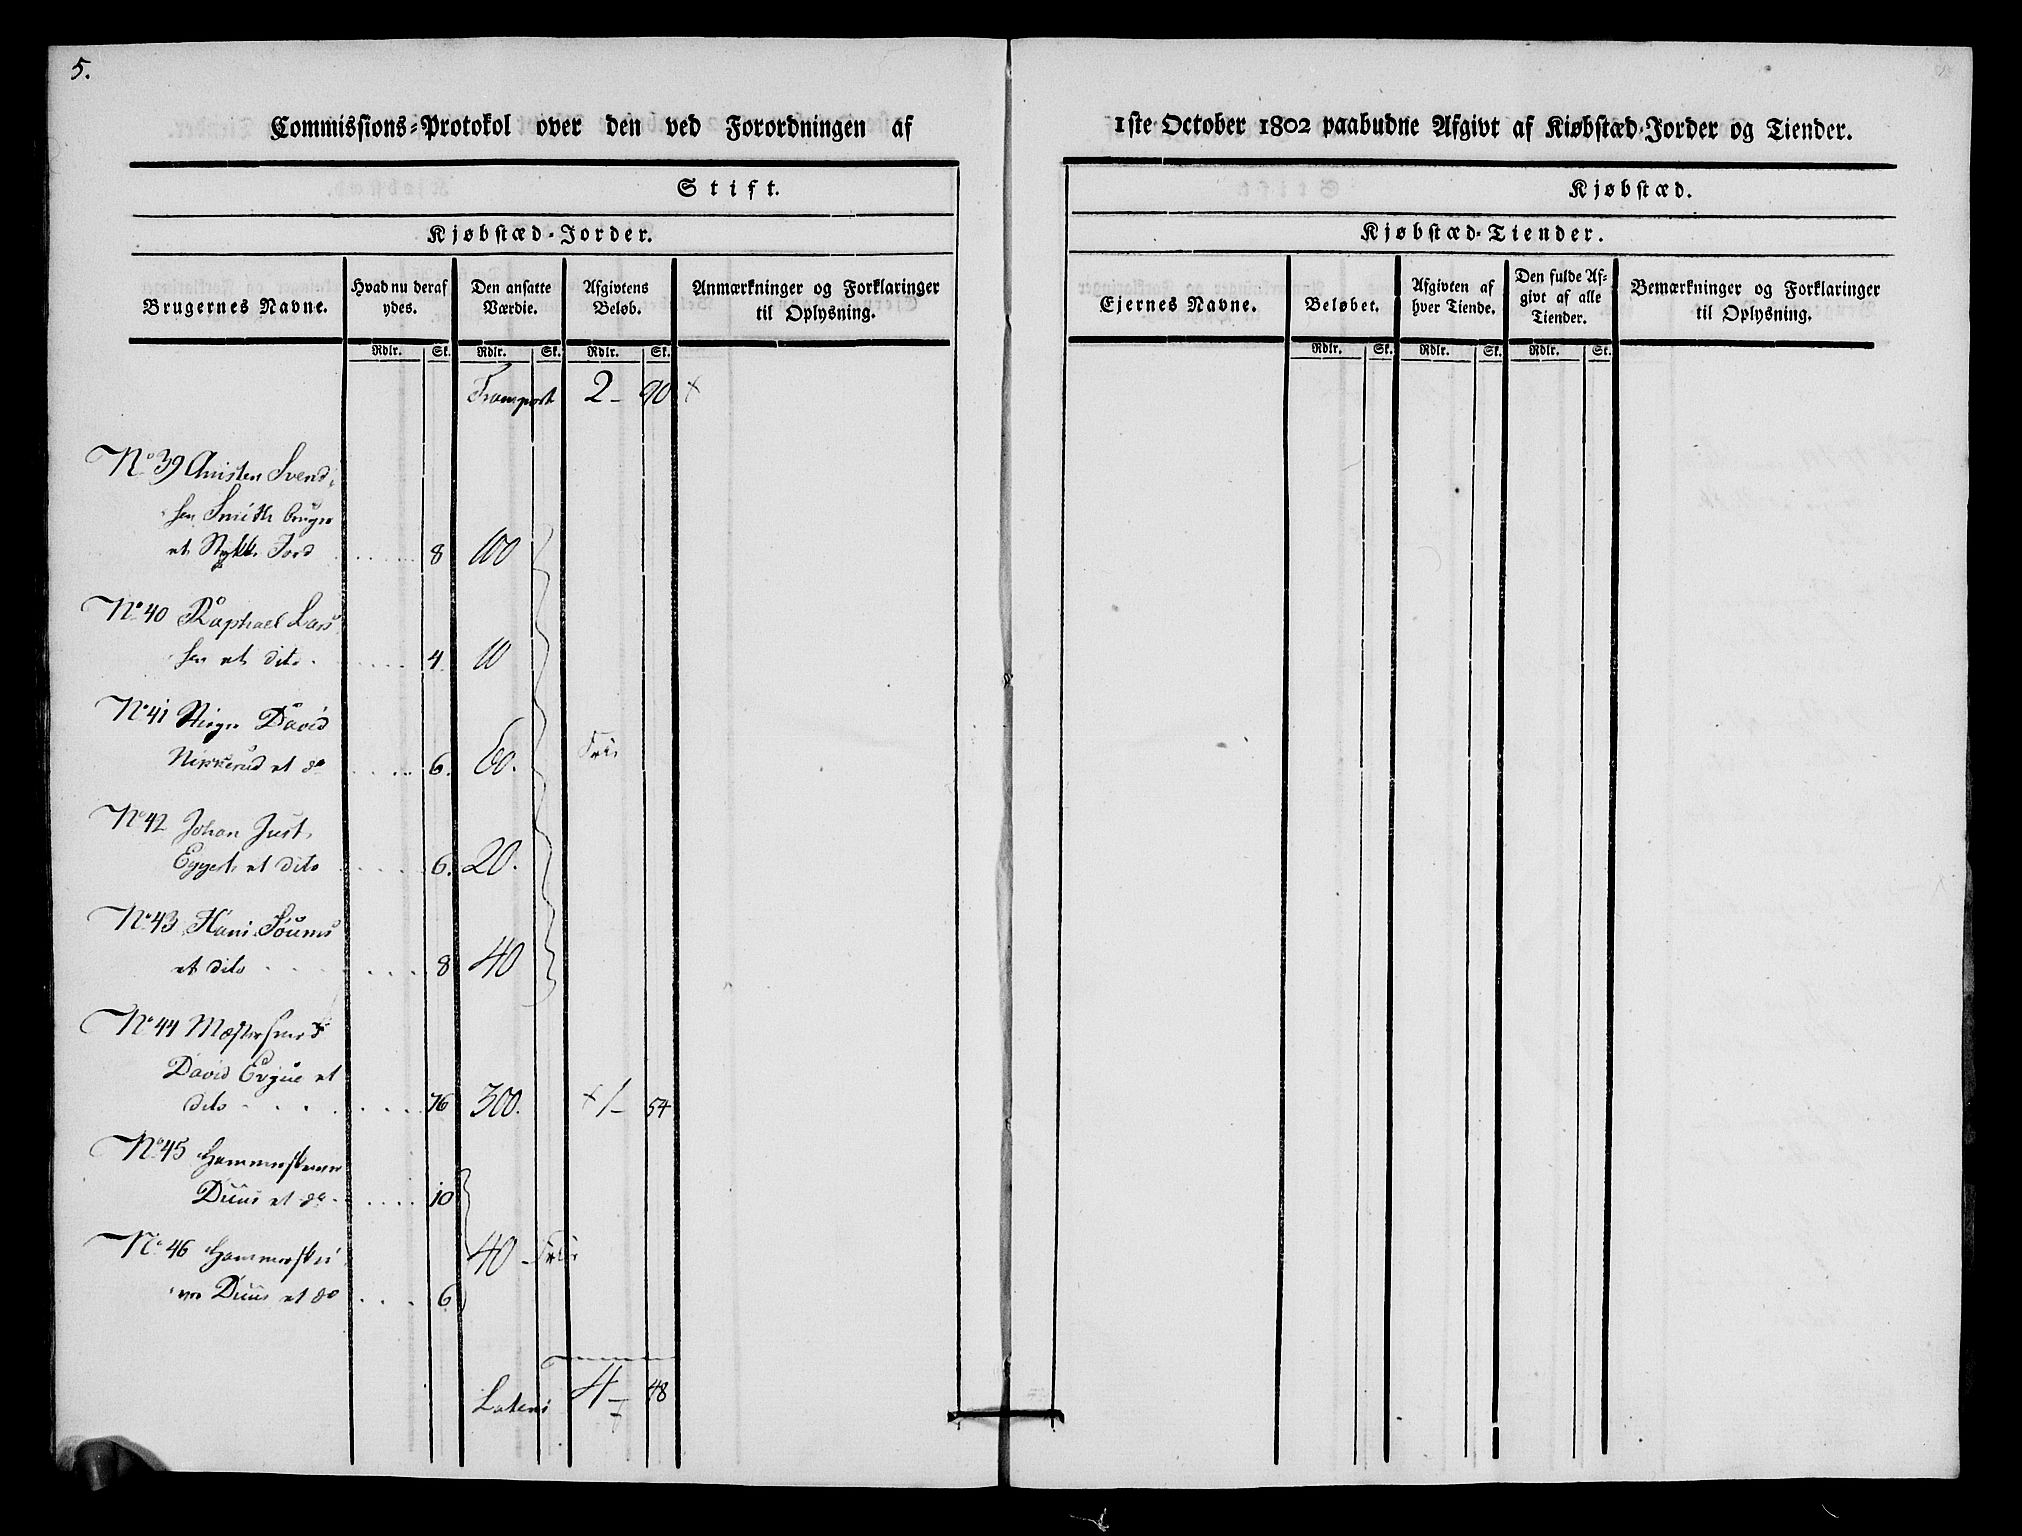 5.
Commissions-Protokol over den ved Forordningen af
1ste October 1802 paabudne Afgivt af Kiøbstæd-Jorder og Tiender.
Stift.
Kjøbstæd.
Kjøbstæd-Jorder.
Kjøbstæd-Tiender.
Brugernes Navne.
Hvad nu deraf
ydes.
Den ansatte
Værdie.
Afgivtens
Beløb.
Anmærkninger og Forklaringer
til Oplysning.
Ejernes Navne.
Beløbet.
Afgivten af
hver Tiende.
Den fulde Af-
givt af alle
Tiender.
Bemærkninger og Forklaringer
til Oplysning.
Rdlr. Sk. Rdlr. Sk. Rdlr. Sk.
Rdlr. Sk. Rdlr. Sk. Rdlr. Sk.
Transport 2 - 90
No 39 Svend-
sen Smith bruger
et Stykke Jord 8 100
No 40 Raphael Lars
sen et dito 4. 10
No 41 David
Nikkerud et do 6. 60. Frie
No 42 Johan Just
Eggert et dito 6. 20.
No 43
et dito 8 40
No 44
David et
dito 76 300. 1 - 54
No 45
Duus et do 10
No 46 Hammerskri
ver Duus et do 6 40 - Frie
Latus 4 - 48